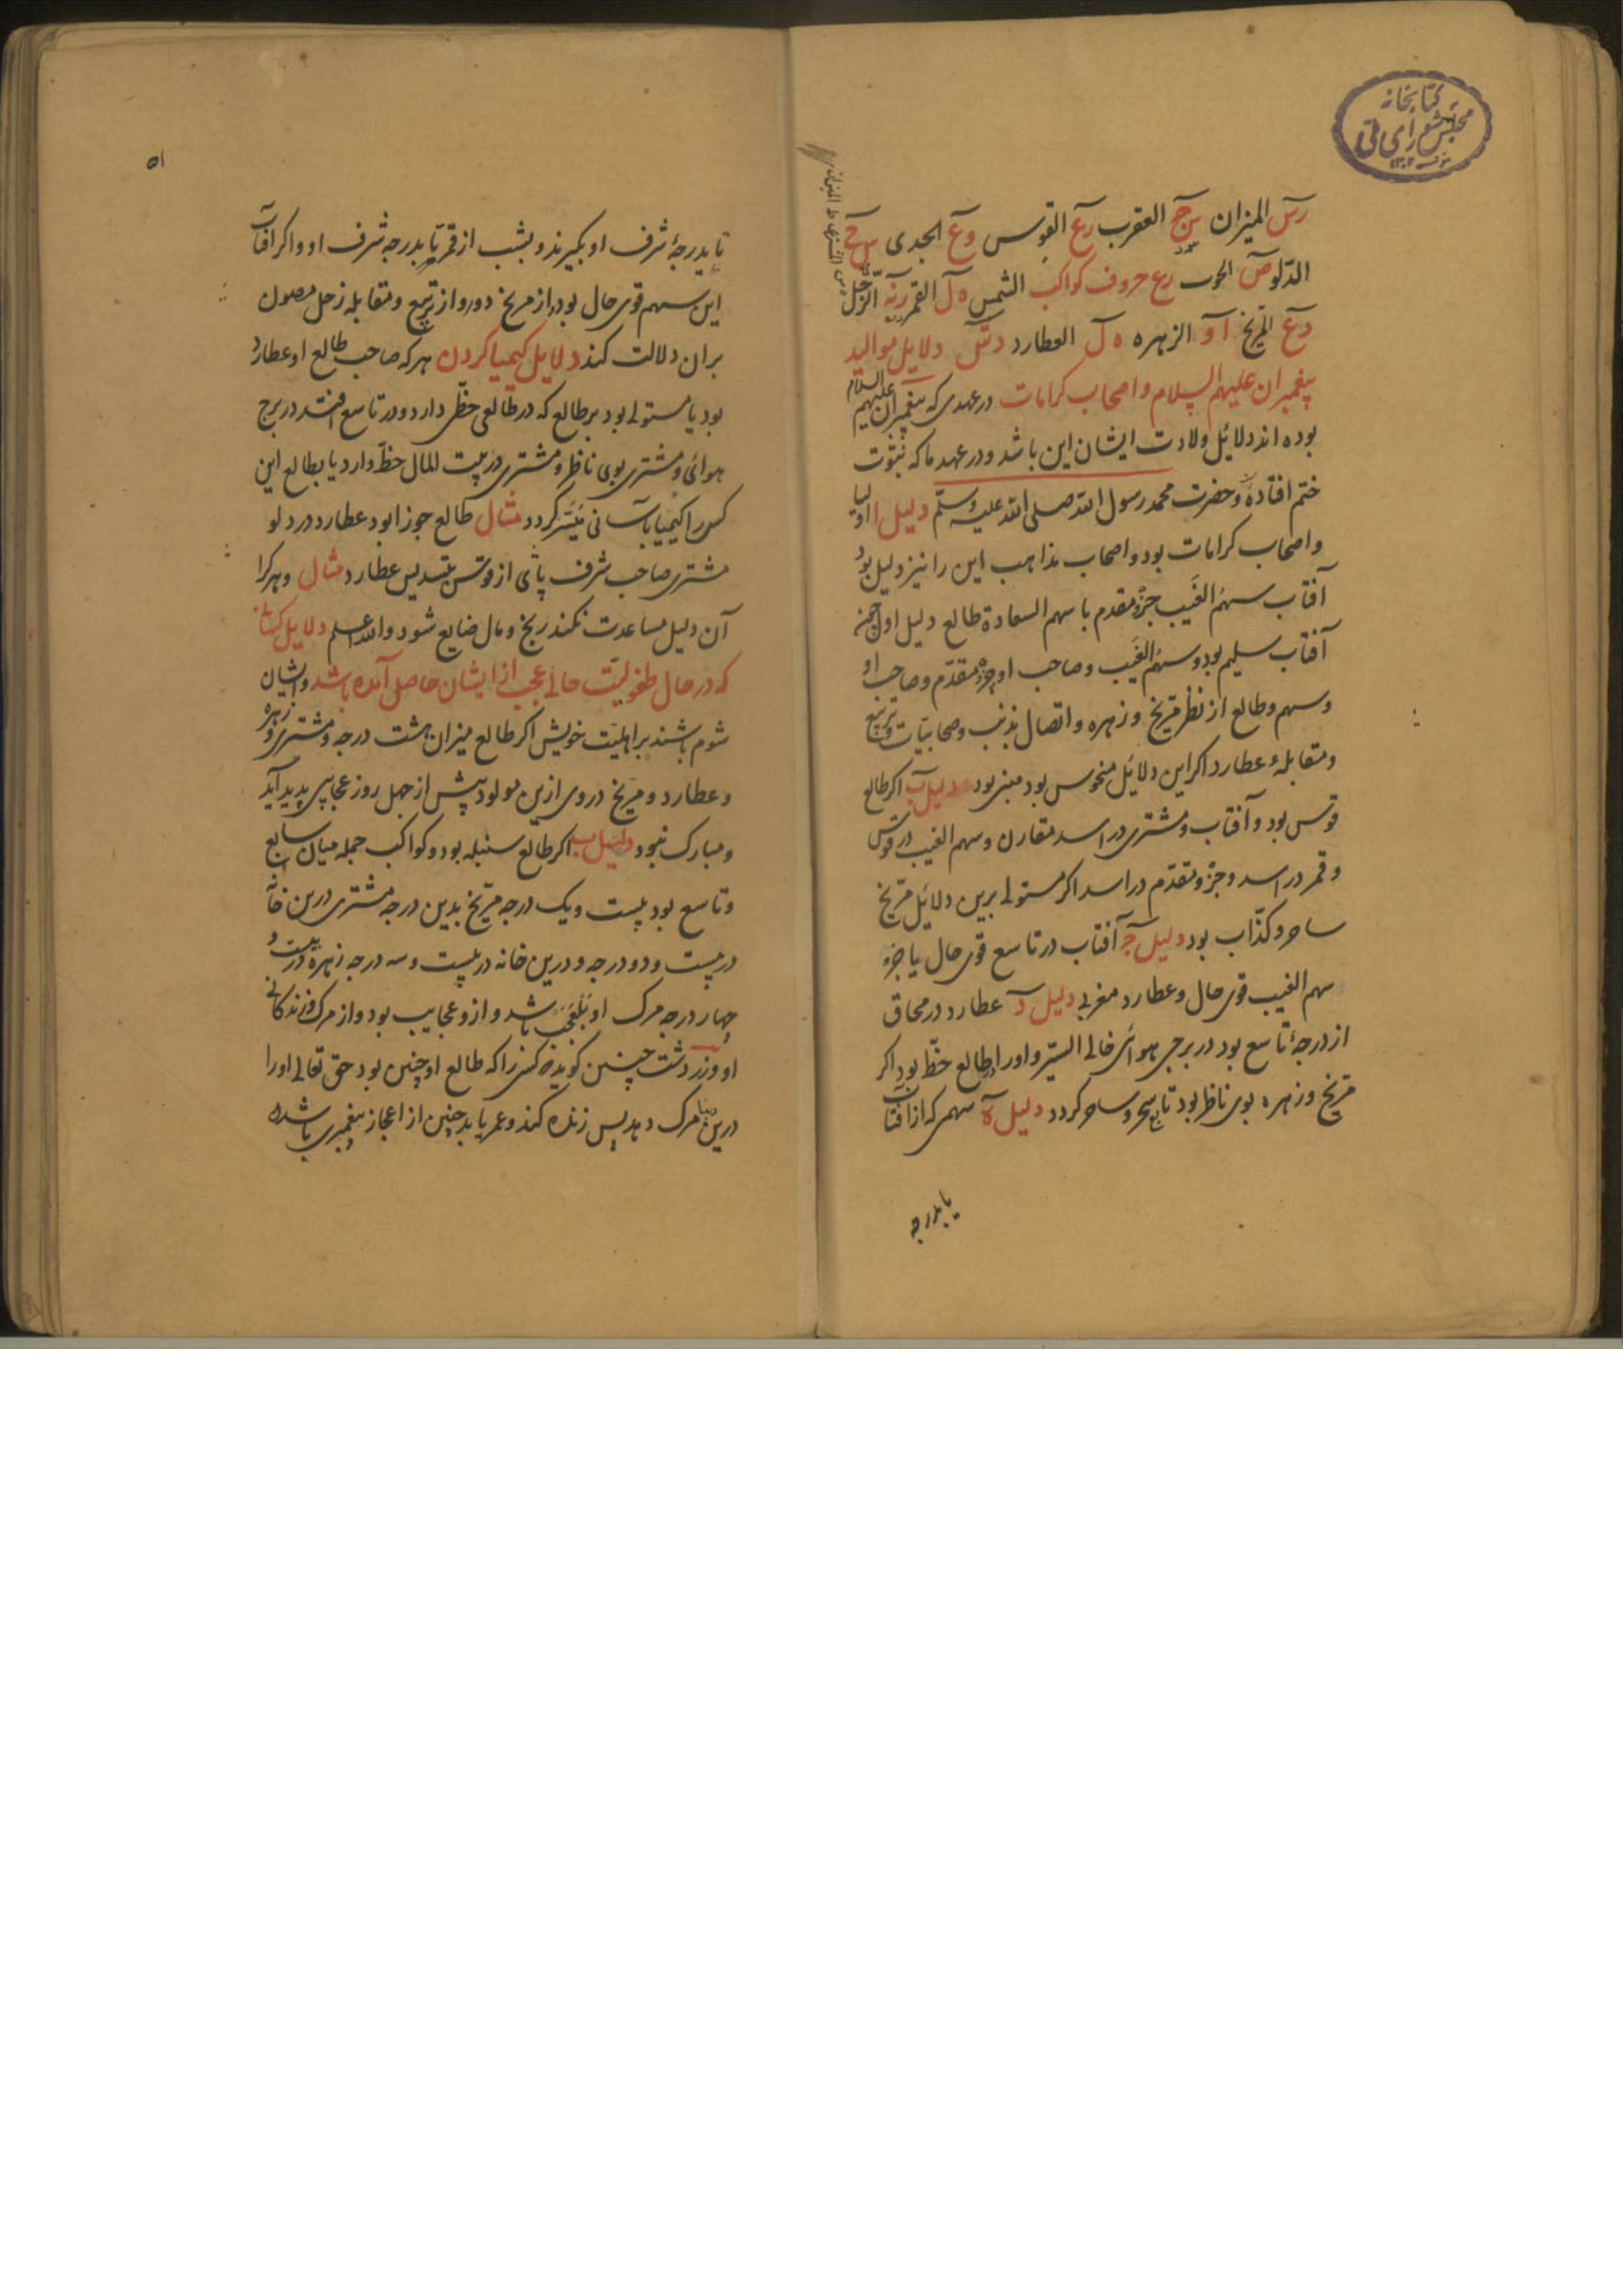 کتابخانه
مجلس شورای ملی
رس المیزان س ج العقرب رع القوس وع الجدی س ح
الدلو ص الحوت رع حروف کواکب الشمس ه ل القمر رنه الزحل
دع المریخ ا و الزهره ه ل العطارد دتس دلایل موالید
پیغمبران علیهم السلام و اصحاب کرامات در عهدی که پیغمبران علیهم السلام
بوده اند دلائل ولادت ایشان این باشد و در عهد ما که نبوت
ختم افتاده و حضرت محمد رسول الله صلی الله علیه و سلم دلیل ا اولیا
و اصحاب کرامات بود و اصحاب مذاهب این را نیز دلیل بود
آفتاب سهم الغیب جزؤ مقدم با سهم السعادة طالع دلیل اول
آفتاب سلیم بود و سهم الغیب و صاحب او جزؤ مقدم و صاحب او
و سهم و طالع از نظر مریخ و زهره و اتصال بذنب و صحابیّات و تربیع
و مقابلهٔ عطارد اکر این دلائل منحوس بود مبنی بود دلیل ب اکر طالع
قوس بود و آفتاب و مشتری در اسد مقارن و سهم الغیب در قوس
و قمر در اسد و جزؤ مقدم در اسد اکر مستولی برین دلائل مریخ
ساحر و کذّاب بود دلیل ج آفتاب در تاسع قوی حال یا جزؤ
سهم الغیب قوی حال و عطارد مغربی دلیل د عطارد در محاق
از درجهٔ تاسع بود در برجی هوائی خالی السیر و او را بطالع حظّ بود اکر
مریخ و زهره بوی ناظر بود تابع سحر و ساحر کردد دلیل ه سهمی که از افتاب
یا بدرجه
۵۱
تا بدرجهٔ شرف او بکیرند و بشب از قمر تا بدرجه شرف او و اکر افتاب
این سهم قوی حال بود و از مریخ دور و از تربیع و مقابله زحل مصون
بران دلالت کند دلایل کیمیا کردن هر که صاحب طالع او عطارد
بود یا مستولی بود بر طالع که در طالعی حظّی دارد و در تاسع افتد در برج
هوائی و مشتری بوی ناظر و مشتری در بیت المال حظّ دارد یا بطالع این
کس را کیمیا بآسانی میسّر کردد مثال طالع جوزا بود عطارد در دلو
مشتری صاحب شرف پای از قوس بتسدیس عطارد مثال و هر کرا
آن دلیل مساعدت نکند رنج و مال ضایع شود والله اعلم دلایل کسانی
که در حال طفولیّت حالی عجب از ایشان حاصل آمده باشد و ایشان
شوم باشند بر اهلبیت خویش اکر طالع میزان هشت درجه و مشتری و زهره
و عطارد و مریخ در وی ازین مولود پیش از چهل روز عجایبی پدید آید
و مبارک نبود دلیل ب اکر طالع سنبله بود و کواکب جمله میان سابع
و تاسع بود بیست و یک درجه مریخ بدین درجه مشتری درین خانه
در بیست و دو درجه و درین خانه در بیست و سه درجه زهره در بیست و
چهار درجه مرک او بلعجب باشد و از و عجایب بود و از مرک و زندکانی
او و زردشت چنین کوید هر کس را که طالع او چنین بود حق تعالی او را
درین دنیا مرک دهد پس زنده کند و عمر یابد چنین از اعجاز پیغمبری باشد